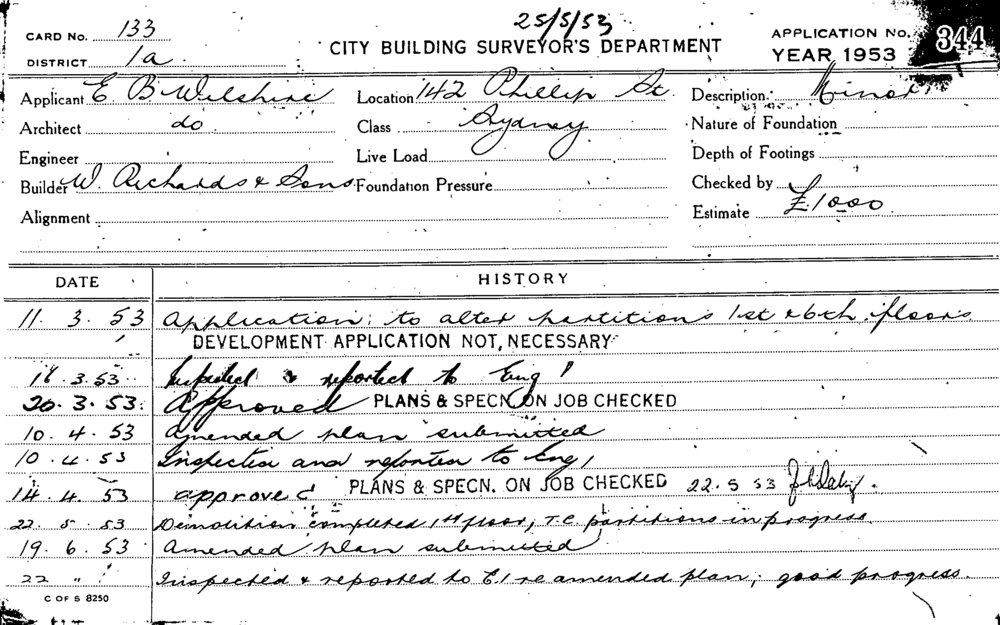 25/5/53
CARD No. 133
DISTRICT 1a.
CITY BUILDING SURVEYOR'S DEPARTMENT
APPLICATION No. 344
YEAR 1953
Applicant E B Wilshire Location 142 Phillip St. Description Minor
Architect do Class Sydney Nature of Foundation
Engineer Live Load Depth of Footings
Builder W. Richards & Sons Foundation Pressure Checked by
Alignment Estimate £1000
DATE HISTORY
11. 3. 53 Application to alter partitions 1st & 6th floors
DEVELOPMENT APPLICATION NOT, NECESSARY
3.53 Inspected & reported to Eng'
20.3.53. Approved PLANS & SPECN. ON JOB CHECKED
10.4.53 Amended plan submitted
10.4.53 Inspected and reported to Eng,
14.4.53 approved PLANS & SPECN. ON JOB CHECKED 22.5 53
22.5.53 Demolition completed 1st floor, T.C. partitions in progress.
19.6.53 Amended plan submitted
22 " Inspected & reported to E/ re amended plan; good progress.
C OF S 8250